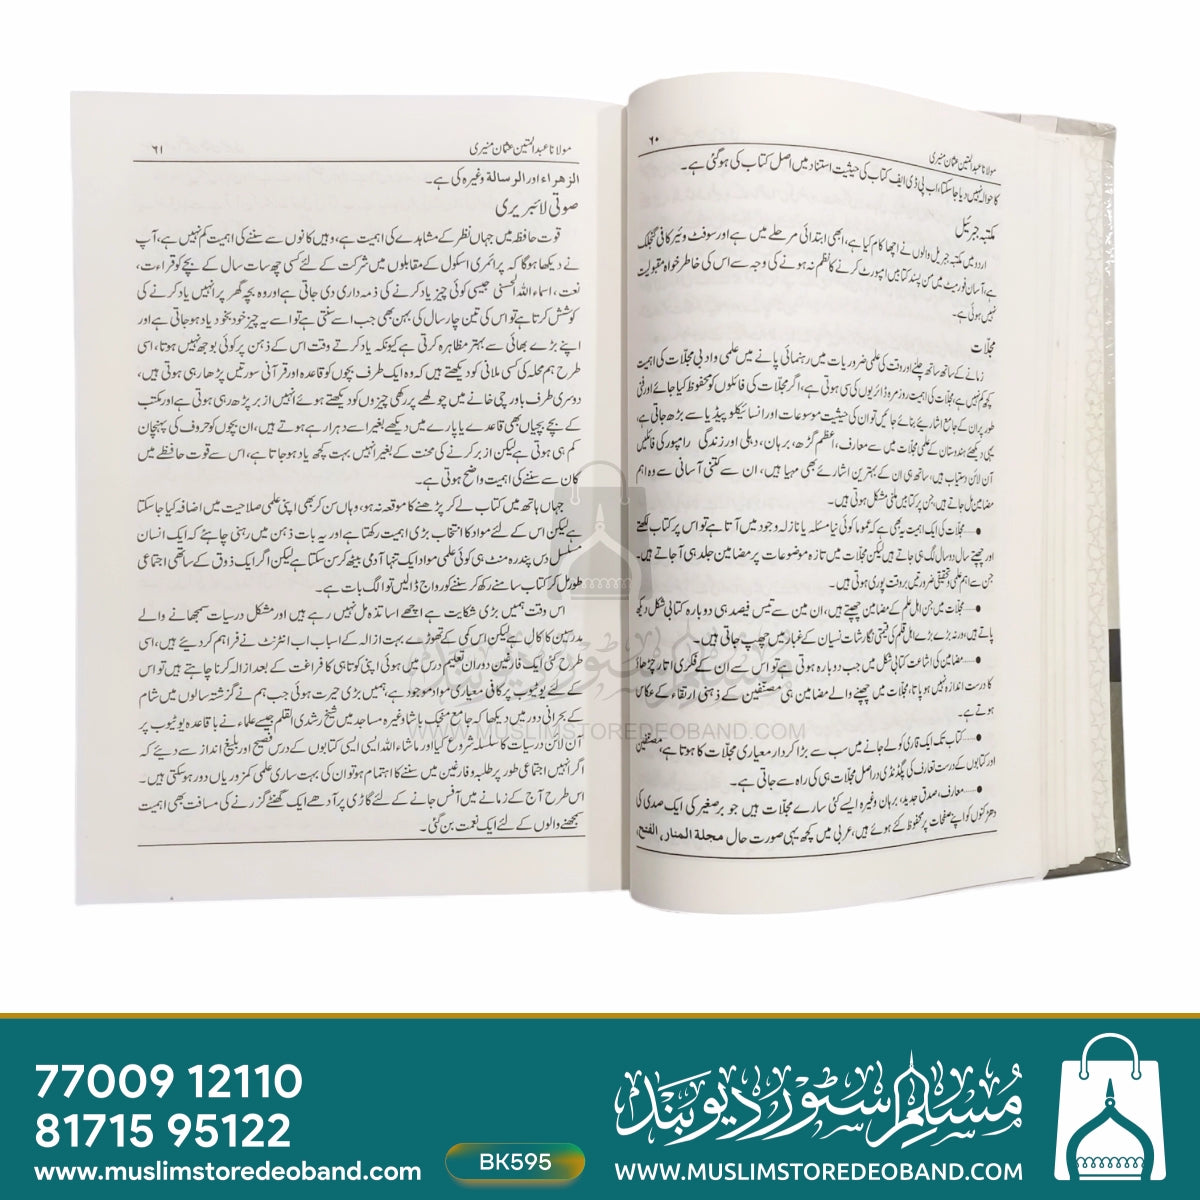 ۶۰
مولانا عبدالمتین عثمان منیری
کا حوالہ نہیں دیا جاسکتا، اب پی ڈی ایف کتاب کی حیثیت استناد میں اصل کتاب کی ہوگئی ہے۔
مکتبہ جبرئیل
اردو میں مکتبہ جبریل والوں نے اچھا کام کیا ہے، ابھی ابتدائی مرحلے میں ہے اور سوفٹ وئیر کافی گنجلک
ہے، آسان فورمیٹ میں من پسند کتابیں امپورٹ کرنے کا نظم نہ ہونے کی وجہ سے اس کی خاطر خواہ مقبولیت
نہیں ہوئی ہے۔
مجلّات
زمانے کے ساتھ ساتھ چلنے اور وقت کی علمی ضروریات میں رہنمائی پانے میں علمی وادبی مجلّات کی اہمیت
کچھ کم نہیں ہے، مجلّات کی اہمیت روز مرہ ڈائریوں کی سی ہوتی ہے، اگر مجلّات کی فائلوں کو محفوظ کیا جائے اور فنی
طور پر ان کے جامع اشاریے بنائے جائیں تو ان کی حیثیت موسوعات اور انسائیکلوپیڈیا سے بڑھ جاتی ہے،
یہی دیکھئے ہندوستان کے علمی مجلّات میں سے معارف، اعظم گڑھ، برہان، دہلی اور زندگی رامپور کی فائلیں
آن لائن دستیاب ہیں، ساتھ ہی ان کے بہترین اشاریے بھی مہیا ہیں، ان سے کتنی آسانی سے وہ اہم
مضامین مل جاتے ہیں، جن پر کتابیں ملنی مشکل ہوتی ہیں۔
●......مجلّات کی ایک اہمیت یہ بھی ہے کہ عموما کوئی نیا مسئلہ یا نازلہ وجود میں آتا ہے تو اس پر کتاب لکھنے
اور چھپنے سال دو سال لگ ہی جاتے ہیں لیکن مجلّات میں تازہ موضوعات پر مضامین جلد ہی آجاتے ہیں۔
جن سے اہم علمی و تحقیقی ضرورتیں بروقت پوری ہوتی ہیں۔
●......مجلّات میں جن اہل علم کے مضامین چھپتے ہیں، ان میں سے تیس فیصد ہی دوبارہ کتابی شکل دیکھ
پاتے ہیں، ورنہ بڑے بڑے اہل قلم کی قیمتی نگارشات نسیان کے غبار میں چھپ جاتی ہیں۔
●......مضامین کی اشاعت کتابی شکل میں جب دوبارہ ہوتی ہے تو اس سے ان کے فکری اتار چڑھاؤ
کا درست اندازہ نہیں ہو پاتا، مجلّات میں چھپنے والے مضامین ہی مصنفین کے ذہنی ارتقاء کے عکاس
ہوتے ہے۔
●......کتاب تک ایک قاری کو لے جانے میں سب سے بڑا کردار معیاری مجلّات کا ہوتا ہے، مصنفین
اور کتابوں کے درست تعارف کی پگڈنڈی دراصل مجلّات ہی کی راہ سے جاتی ہے۔
●......معارف، صدق جدید، برہان وغیرہ ایسے کئی سارے مجلّات ہیں جو برصغیر کی ایک صدی کی
دھڑکنوں کو اپنے صفحات پر محفوظ کئے ہوئے ہیں، عربی میں کچھ یہی صورت حال مجلة المنار، الفتح،
مولانا عبدالمتین عثمان منیری
۶۱
الزهراء اور الرسالة وغیرہ کی ہے۔
صوتی لائبریری
قوت حافظہ میں جہاں نظر کے مشاہدے کی اہمیت ہے، وہیں کانوں سے سننے کی اہمیت کم نہیں ہے، آپ
نے دیکھا ہوگا کہ پرائمری اسکول کے مقابلوں میں شرکت کے لئے کسی چھ سات سال کے بچے کو قراءت،
نعت، اسماء اللہ الحسنٰی جیسی کوئی چیز یاد کرنے کی ذمہ داری دی جاتی ہے اور وہ بچہ گھر پر انہیں یاد کرنے کی
کوشش کرتا ہے تو اس کی تین چار سال کی بہن بھی جب اسے سنتی ہے تو اسے یہ چیز خود بخود یاد ہو جاتی ہے اور
اپنے بڑے بھائی سے بہتر مظاہرہ کرتی ہے کیونکہ یاد کرتے وقت اس کے ذہن پر کوئی بوجھ نہیں ہوتا، اسی
طرح ہم محلہ کی کسی ملانی کو دیکھتے ہیں کہ وہ ایک طرف بچوں کو قاعدہ اور قرآنی سورتیں پڑھا رہی ہوتی ہیں،
دوسری طرف باورچی خانے میں چولھے پر رکھی چیزوں کو دیکھتے ہوئے انہیں از بر پڑھ رہی ہوتی ہے اور مکتب
کے بچے بچیاں بھی قاعدے یا پارے میں دیکھے بغیر اسے دہرا رہے ہوتے ہیں، ان بچوں کو حروف کی پہنچان
کم ہی ہوتی ہے لیکن از بر کرنے کی محنت کے بغیر انہیں بہت کچھ یاد ہو جاتا ہے، اس سے قوت حافظے میں
کان سے سننے کی اہمیت واضح ہوتی ہے۔
جہاں ہاتھ میں کتاب لے کر پڑھنے کا موقعہ نہ ہو، وہاں سن کر بھی اپنی علمی صلاحیت میں اضافہ کیا جا سکتا
ہے لیکن اس کے لئے مواد کا انتخاب بڑی اہمیت رکھتا ہے اور یہ بات ذہن میں رہنی چاہئے کہ ایک انسان
مسلسل دس پندرہ منٹ ہی کوئی علمی مواد ایک تنہا آدمی بیٹھ کر سن سکتا ہے لیکن اگر ایک ذوق کے ساتھی اجتماعی
طور مل کر کتاب سامنے رکھ کر سننے کو رواج ڈالیں تو الگ بات ہے۔
اس وقت ہمیں بڑی شکایت ہے اچھے اساتذہ مل نہیں رہے ہیں اور مشکل درسیات سمجھانے والے
مدرسین کا کال ہے لیکن اس کمی کے تھوڑے بہت ازالہ کے اسباب اب انٹرنٹ نے فراہم کردیئے ہیں، اسی
طرح کئی ایک فارغین دوران تعلیم درس میں ہوئی اپنی کوتاہی کا فراغت کے بعد ازالہ کرنا چاہتے ہیں تو اس
کے لئے یوٹیوب پر کافی معیاری مواد موجود ہے ہمیں بڑی حیرت ہوئی جب ہم نے گزشتہ سالوں میں شام
کے بحرانی دور میں دیکھا کہ جامع منجک باشا وغیرہ مساجد میں شیخ رشدی القلم جیسے علماء نے باقاعدہ یوٹیوب پر
آن لائن درسیات کا سلسلہ شروع کیا اور ماشاء اللہ ایسی ایسی کتابوں کے درس فصیح اور بلیغ انداز سے دیئے کہ
اگر انہیں اجتماعی طور پر طلبہ و فارغین میں سننے کا اہتمام ہو تو ان کی بہت ساری علمی کمزوریاں دور ہوسکتی ہیں۔
اس طرح آج کے زمانے میں آفس جانے کے لئے گاڑی پر آدھے ایک گھنٹے گزرنے کی مسافت بھی اہمیت
سمجھنے والوں کے لئے ایک نعمت بن گئی۔
مسلم سٹور دیوبند
WWW.MUSLIMSTOREDEOBAND.COM
77009 12110
81715 95122
www.muslimstoredeoband.com
BK595
مسلم سٹور دیوبند
WWW.MUSLIMSTOREDEOBAND.COM